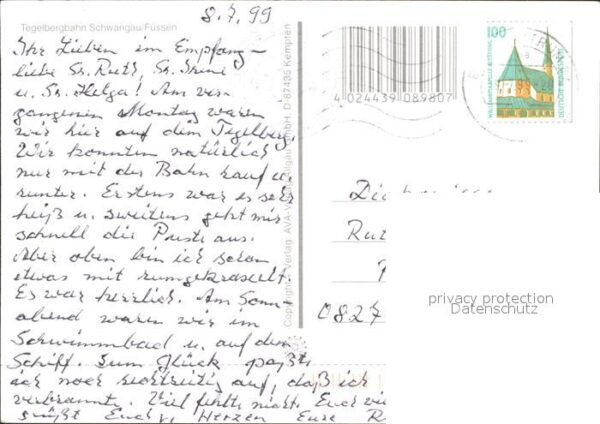 8.7.99
Tegelbergbahn Schwangau/Füssen
Ihr Lieben im Empfang –
liebe Sr. Ruth, Sr. Irene
u. Sr. Helga! Am ver-
gangenen Montag waren
wir hier auf dem Tegelberg.
Wir konnten natürlich
nur mit der Bahn rauf u.
runter. Erstens war es sehr
heiß u. zweitens geht mir
schnell die Puste aus.
Aber oben bin ich schon
etwas mit rumgekraxelt.
Es war herrlich. Am Sonn-
abend waren wir im
Schwimmbad u. auf dem
Schiff. Zum Glück paßte
ich noch rechtzeitig auf, daß ich
verbrannte. Viel fehlte nicht. Euch
grüßt Euch v. Herzen Eure R
4 024439 089807
100
Copyright Verlag: AVA-Verlag Allgäu GmbH, D-87435 Kempten
Di
Ru
082
privacy protection
Datenschutz